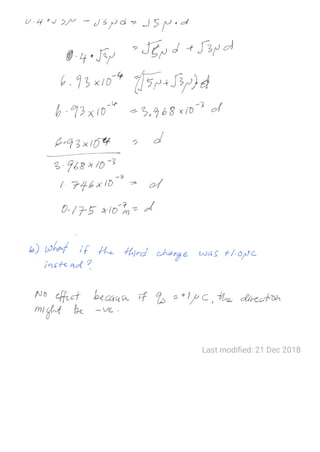 0.4 • √3μ - √3μd = √5μ • d
0.4 • √3μ = √5μ d + √3μ d
6.93 x10⁻⁴ = (√5μ + √3μ) d
6.93 x10⁻⁴ = 3.968 x10⁻³ d
6.93 x10⁻⁴ = d
3.968 x10⁻³
1.746 x10⁻¹ = d
0.175 m = d
b) What if the third charge was +1.0μC
instead?
No effect because if q₀ = +1μC, the direction
might be -ve.
Last modified: 21 Dec 2018